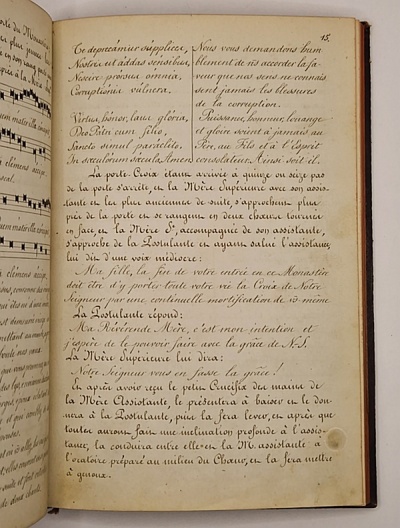 15.
Te deprecámur súpplices, Nous vous demandons hum
Nostris ut addas sensibus, blement de n'accorder la fa-
Nescire prorsus omnia, veur que nos sens ne connais
Corruptiónis vúlnera. sent jamais les blessures
de la corruption.
Virtus, hónor, laus, glória, Puissance, honneur, louange
Deo Patri cum filio, et gloire soient à jamais au
Sancto simul paráclito, Père, au Fils et à l'Esprit
In sæculorum sæcula Amen consolateur. Ainsi soit il.
La porte-Croix étant arrivée à quinze ou seize pas
de la porte s'arrête, et la Mère Supérieure avec son assis-
tante et les plus anciennes de suite, s'approchent plus
près de la porte et se rangent en deux chœurs tournées
en face, et la Mère Sre, accompagnée de son assistante,
s'approche de la Postulante et ayant salué l'assistance,
lui dit d'une voix médiocre:
Ma fille, la fin de votre entrée en ce Monastère
doit être d'y porter toute votre vie la Croix de Notre
Seigneur par une continuelle mortification de v-même
La Postulante répond:
Ma Révérende Mère, c'est mon intention et
j'espère de le pouvoir faire avec la grâce de N.S.
La Mère Supérieure lui dira:
Notre Seigneur vous en fasse la grâce!
Et après avoir reçu le petit Crucifix des mains de
la Mère Assistante, le présentera à baiser et le don-
nera à la Postulante, puis la fera lever, et après que
toutes auront fait une inclination profonde à l'assis-
tance, la conduira entre elle et la M. assistante à
l'oratoire préparé au milieu du Chœur, et la fera mettre
à genoux.